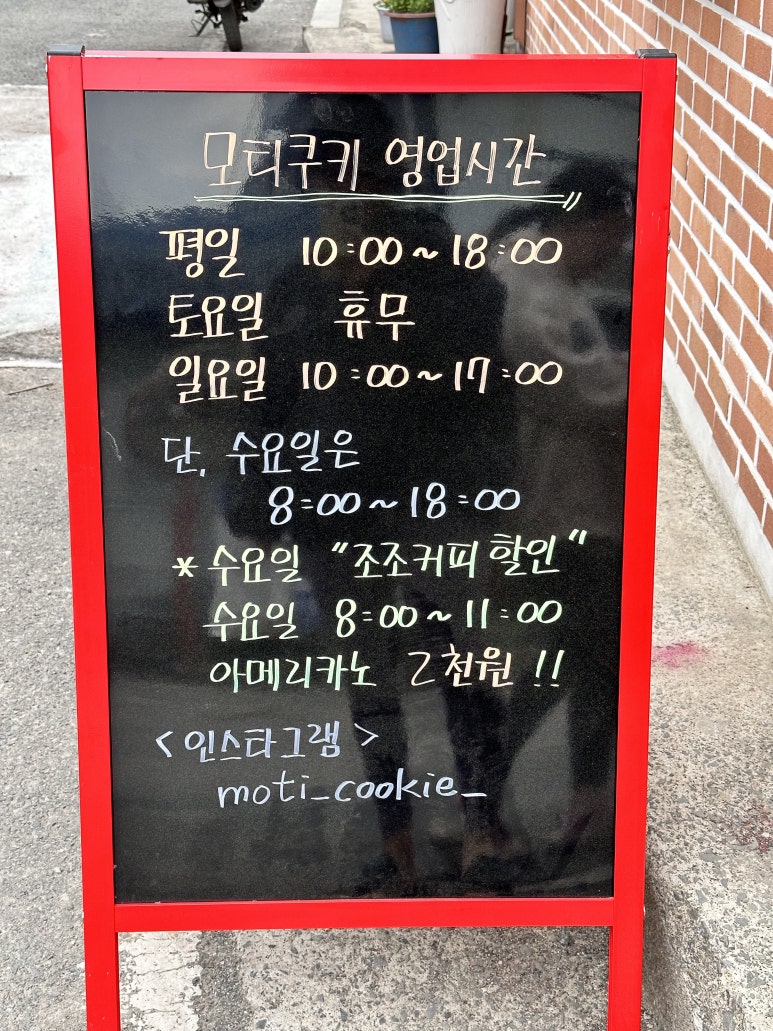 모티쿠키 영업시간
평일 10:00~18:00
토요일 휴무
일요일 10:00~17:00
단, 수요일은
8:00~18:00
* 수요일 "조조커피 할인"
수요일 8:00~11:00
아메리카노 2천원!!
<인스타그램>
moti_cookie_